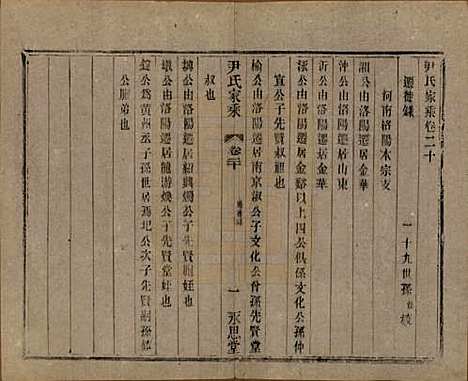 尹氏家乘卷二十
遷徙錄
一十九世孫
校
河南洛陽本宗支
湘公由洛陽遷居金華
沖公由洛陽遷居山東
沂公由洛陽遷居金華
泓公由洛陽遷居金谿以上四公俱係文化公孫仲
宣公子先賢叔祖也
榆公由洛陽遷居南京淑公子文化公曾孫先賢堂
尹氏家乘
卷二十
一
永思堂
叔也
公由洛陽遷居
公子先賢
姪也
公由洛陽遷居龍游煥公子先賢堂姪也
公爲黃州丞子孫世居
公次子先賢嗣孫
公胞弟也